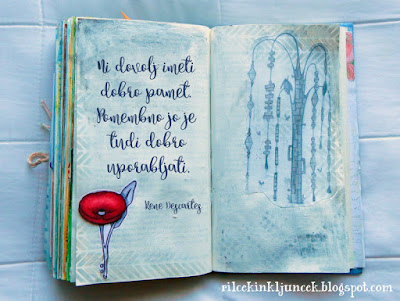 Ni dovolj imeti
dobro pamet.
Pomembno jo je
tudi dobro
uporabljati.
Rene Descartes
rilcekinkljuncek.blogspot.com